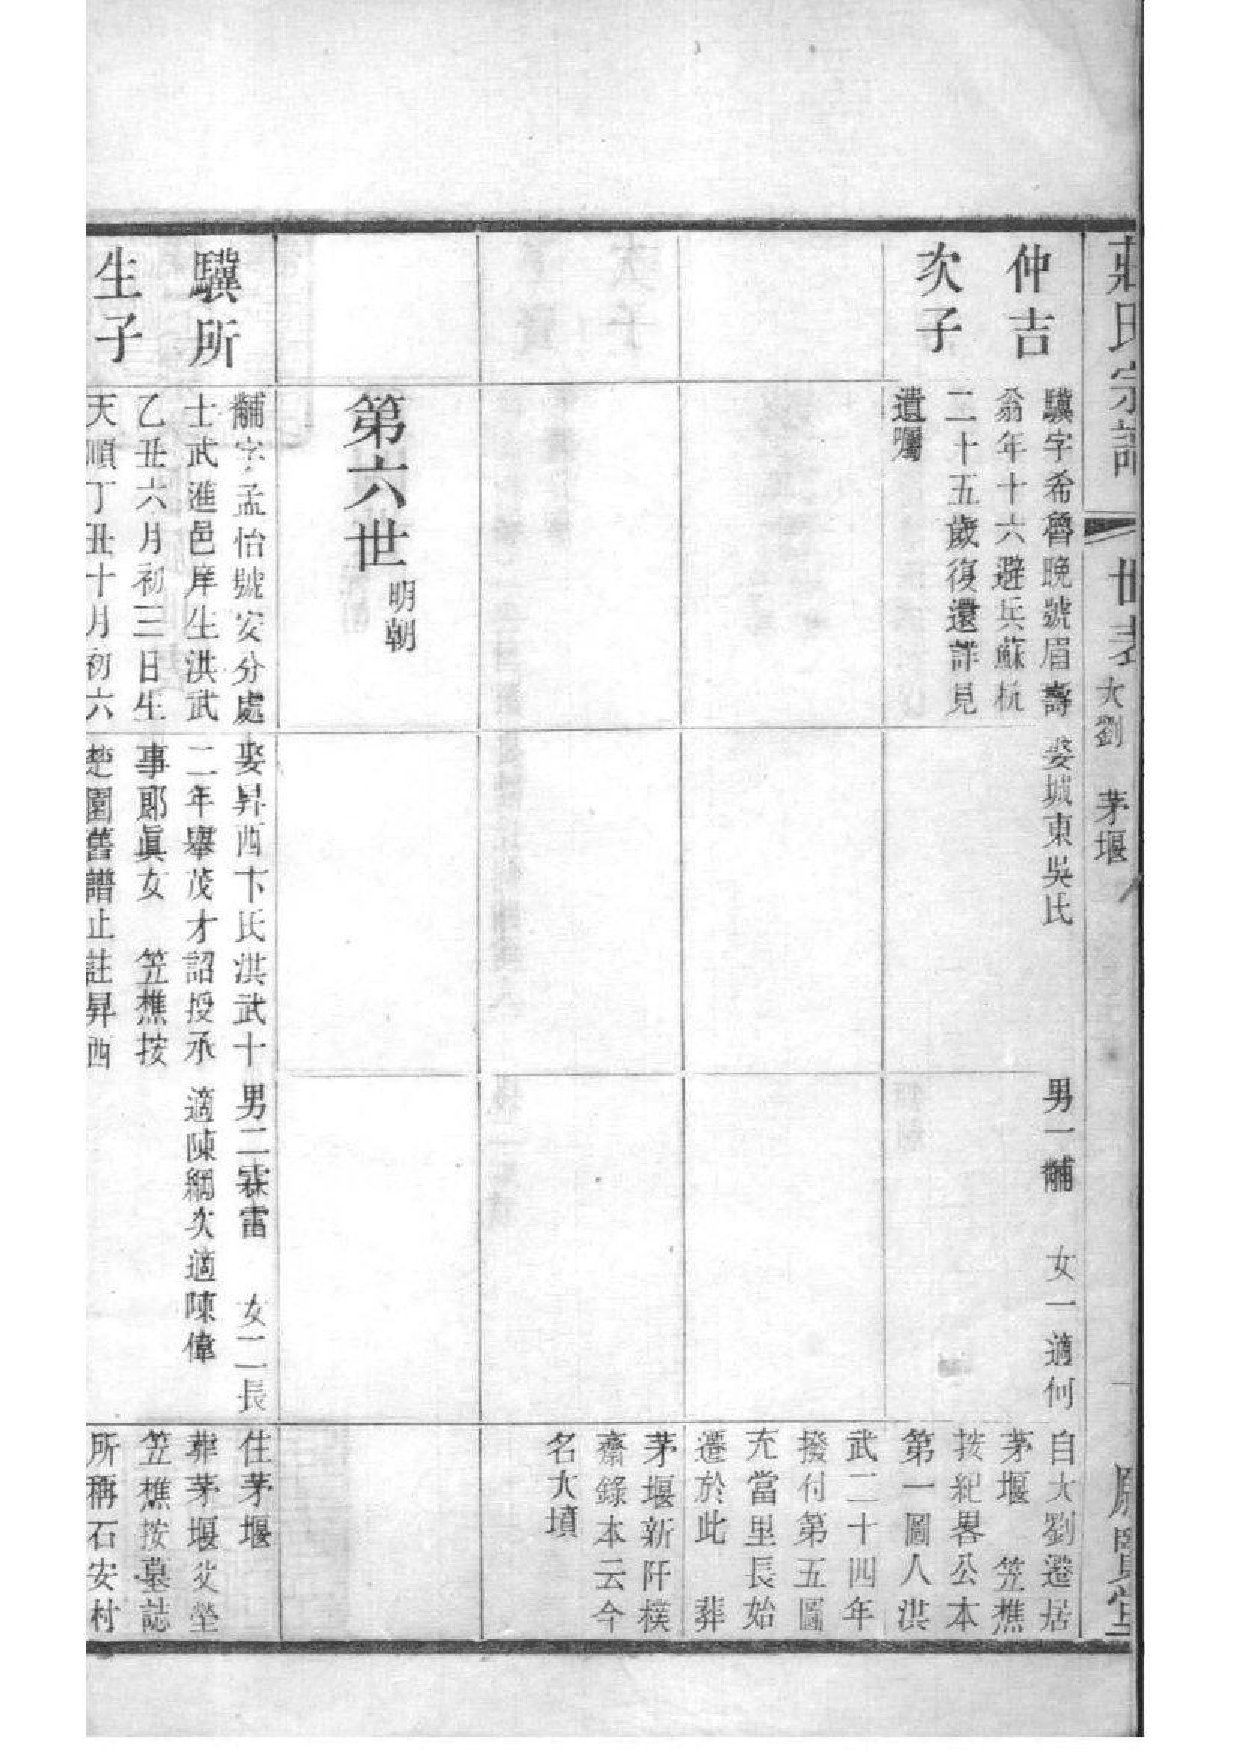 莊氏宗譜
世表
大劉 茅堰
仲吉
次子
驥字希魯晚號眉壽
翁年十六避兵蘇杭
二十五歲復還詳見
遺囑
娶城東吳氏
男一黼 女一適何
自大劉遷居
茅堰 笠樵
按紀畧公本
第一圖人洪
武二十四年
撥付第五圖
充當里長始
遷於此 葬
茅堰新阡樸
齋錄本云今
名大墳
第六世
明朝
驥所
生子
黼字孟怡號安分處
士武進邑庠生洪武
乙丑六月初三日生
天順丁丑十月初六
娶昇西卞氏洪武十
二年舉茂才詔授承
事郎眞女 笠樵按
楚園舊譜止註昇西
男二霖雷 女二長
適陳綱次適陳偉
住茅堰
葬茅堰父塋
笠樵按墓誌
所稱石安村